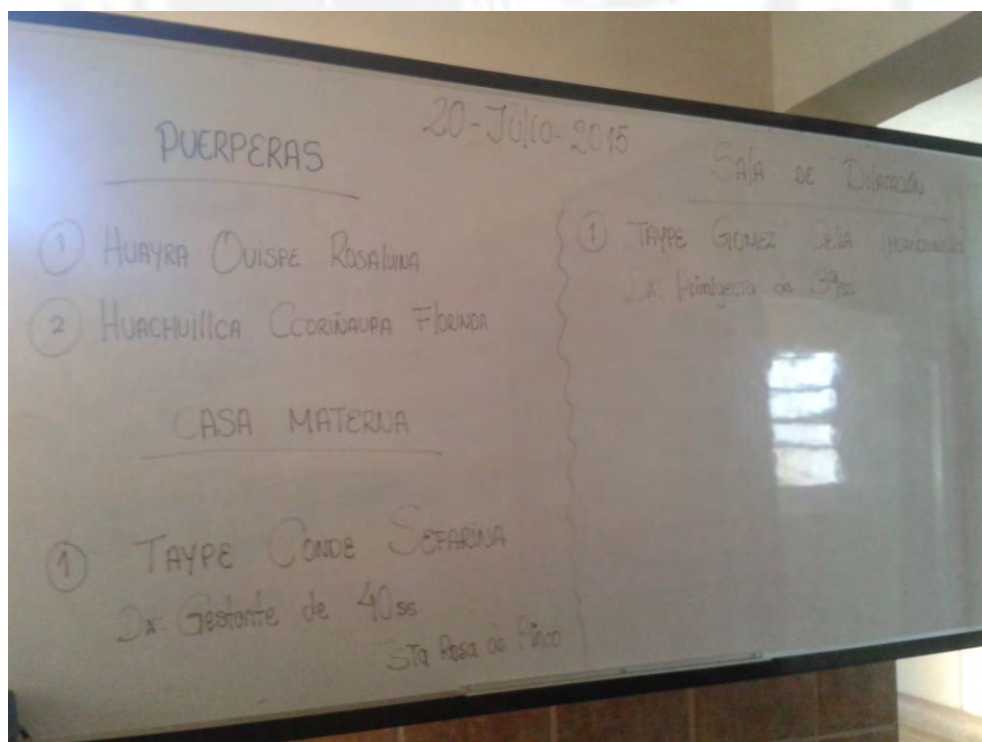 20-Julio-2015
PUERPERAS
① HUAYRA QUISPE ROSALUNA
② HUACHUILLCA CCORIÑAUPA FLORINDA
CASA MATERNA
① TAYPE CONDE SEFARINA
Dx: Gestante de 40ss
Sta Rosa de
SALA DE DILATACIÓN
① TAYPE GOMEZ CELIA
Dx: Primigesta de 39ss